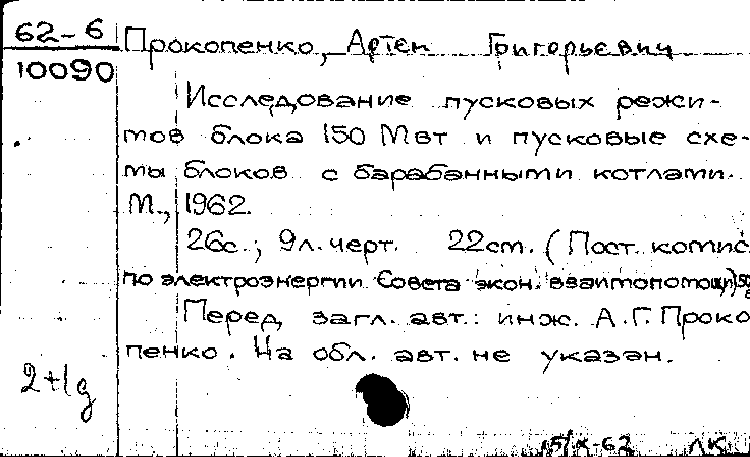 62-6 Прокопенко, Артем Григорьевич
10090
Исследование пусковых режи-
мов блока 150 Мвт и пусковые схе-
мы блоков с барабанными котлами.
М., 1962.
26с.; 9л. черт. 22см. (Пост. комис
по электроэнергии Совета экон. взаимопомощи)
Перед загл. авт.: инж. А.Г. Проко
пенко. На обл. авт. не указан.
2+1g
15/X-62 ЛК